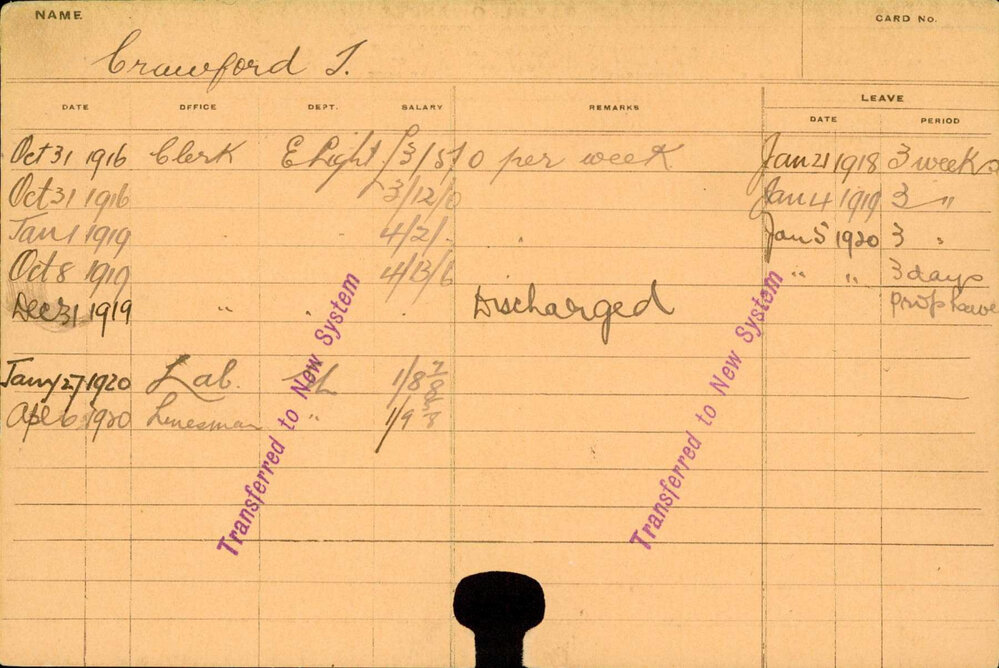 NAME CARD No.
Crawford J.
LEAVE
DATE OFFICE DEPT. SALARY REMARKS DATE PERIOD
Oct 31 1916 Clerk E Light 3/5/0 per week Jan 21 1918 3 weeks
Oct 31 1916 3/12/0 Jan 4 1919 3 "
Jan 1 1919 4/2/. Jan 5 1920 3 "
Oct 8 1919 4/13/6 " " 3 days
Dec 31 1919 " " . Discharged prop leave
Jany 27 1920 Lab. 1/8 7/8
Apl 6 1920 Linesman " 1/9
Transferred to New System
Transferred to New System